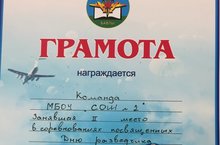 ГРАМОТА
награждается
Команда
МБОУ СОШ № 2
Занявшая II место
в соревнованиях посвященных
Дню разведчика